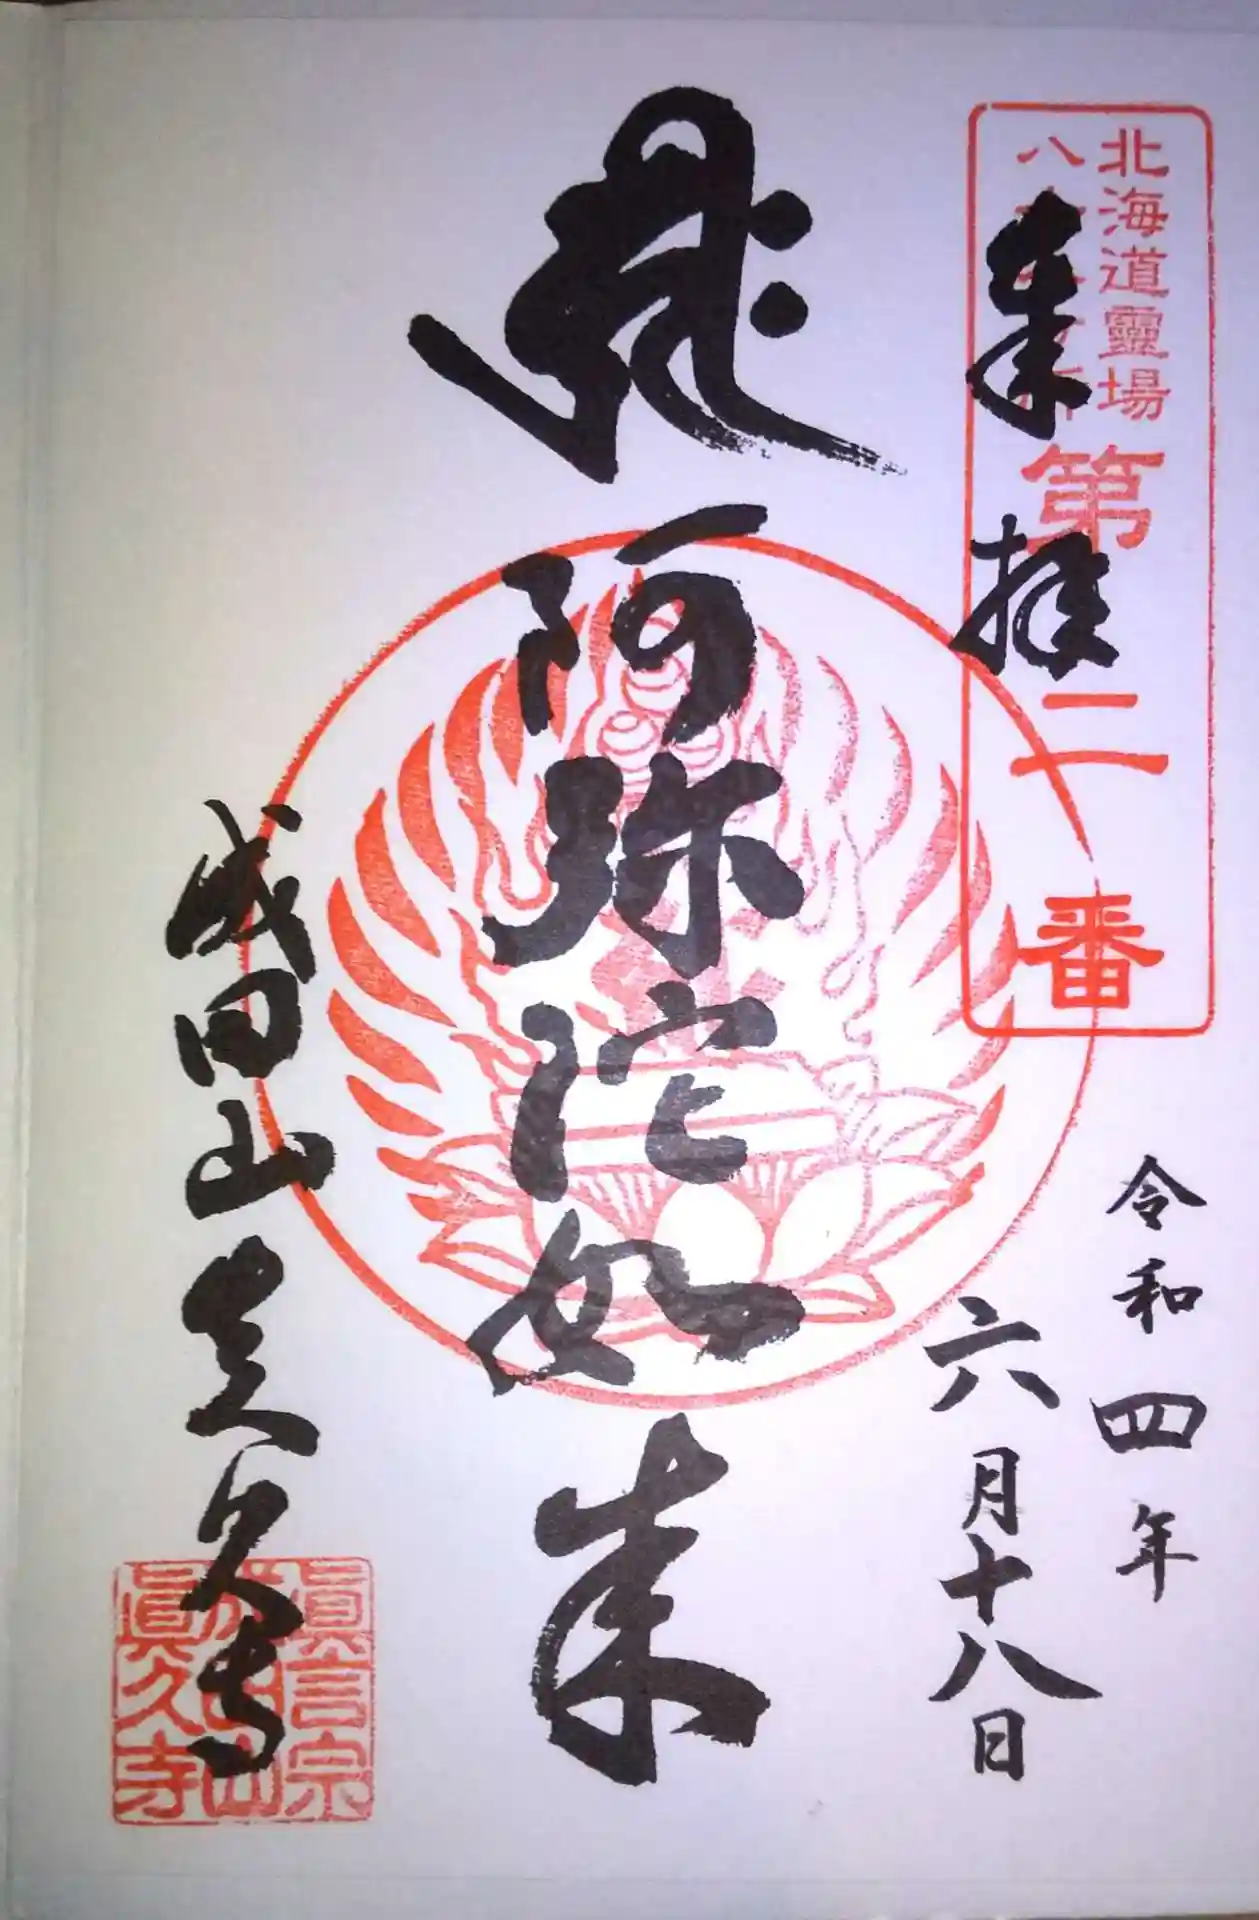 北海道靈場
八十八ヶ所
第二番
奉拝
令和四年
六月十八日
阿弥陀如来
成田山真久寺
眞言宗
成田山
眞久寺